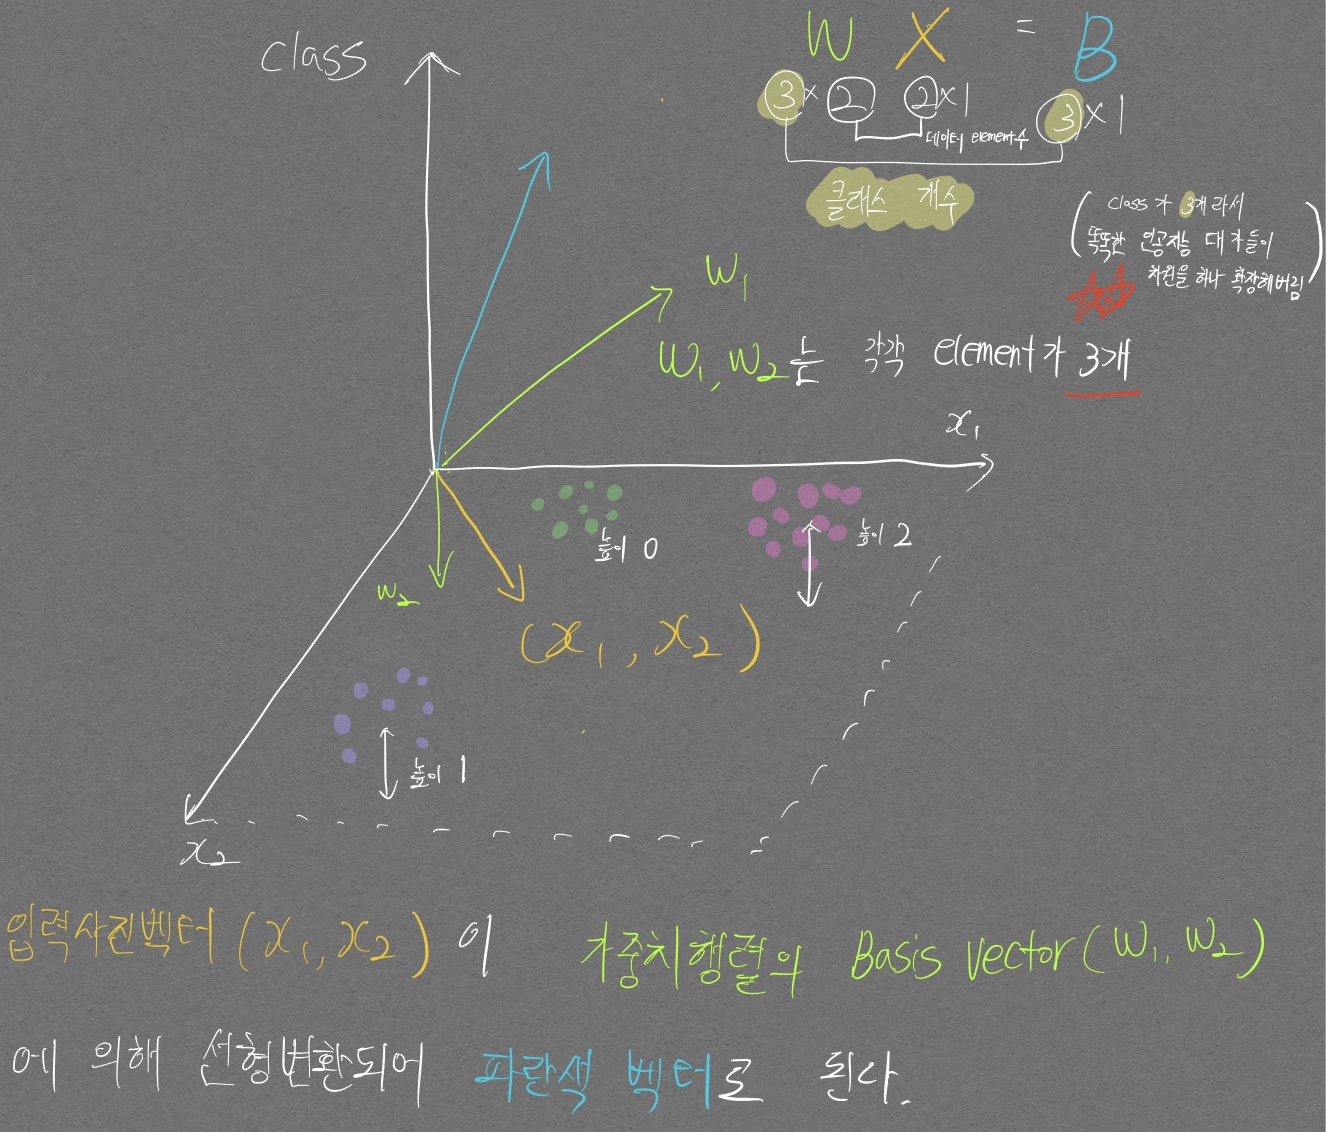 class
W X = B
3 × 2 2 × 1 3 × 1
데이터 element수
클래스 개수
( class가 3개라서
똑똑한 인공지능 대가들이
차원을 하나 확장해버림 )
W₁
W₁, W₂는 각각 element가 3개
x₁
높이 0
높이 2
W₂
(x₁, x₂)
높이 1
x₂
입력사진벡터 (x₁, x₂) 이 가중치행렬의 Basis vector(W₁, W₂)
에 의해 선형변환되어 파란색 벡터로 된다.